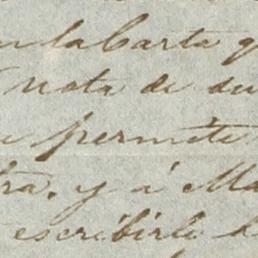 en la Carta q
nota de su
permete
tra. y á Ma
escribirle